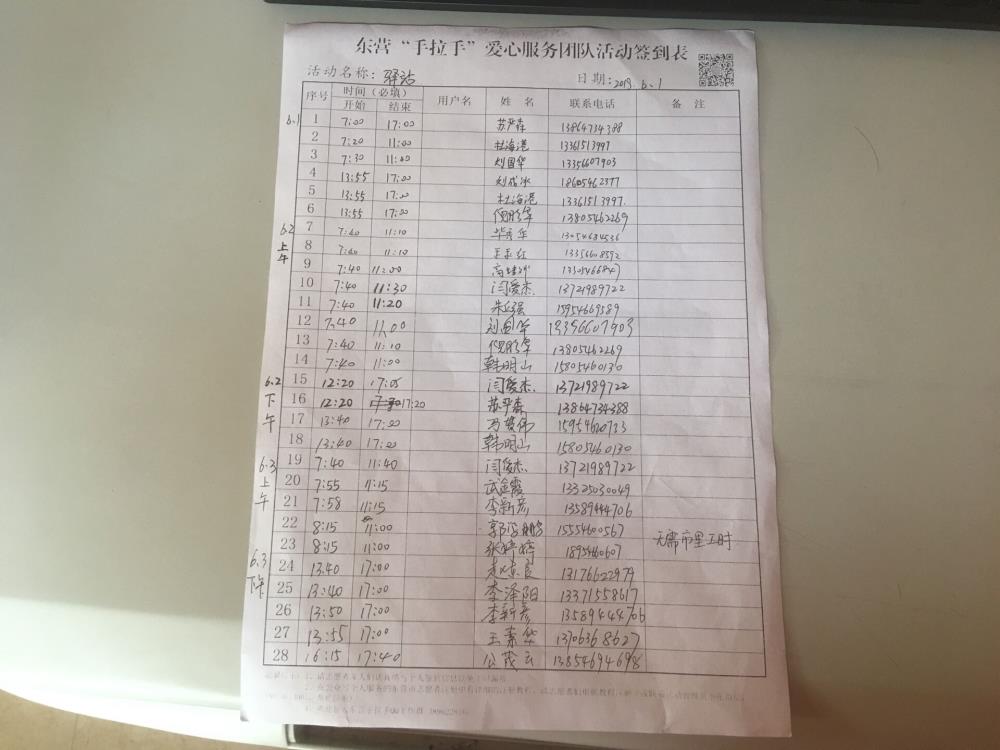 东营“手拉手”爱心服务团队活动签到表
活动名称：驿站 日期：2019.6.1
序号 时间（必填） 用户名 姓 名 联系电话 备 注
开始 结束
6.1 1 7:00 17:00 苏严森 13864734388
2 7:20 11:00 杜海港 13361513997
3 7:30 11:00 刘国华 13356607903
4 13:55 17:00 刘成冰 18605462377
5 13:55 17:00 杜海港 13361513997.
6 13:55 17:00 倪彤军 13805462269
6.2 上午 7 7:40 11:10 华秀华 13054684536
8 7:40 11:10 王玉红 13356608592
9 7:40 11:00
10 7:40 11:30 闫俊杰. 13721989722
11 7:40 11:20 15954669589
12 7.40 11.00 刘国华 13356607903
13 7:40 11:10 倪彤军 13805462269
14 7:40 11:00 韩明山 15805460130
6.2 下午 15 12:20 17:05 闫俊杰. 13721989722
16 12:20 17:20 苏严森 13864734388
17 13:40 17:00 15954620733
18 13:40 17:00 韩明山 15805460130
6.3 上午 19 7:40 11:40 闫俊杰. 13721989722
20 7:55 11:15 武金霞 13325030049
21 7:58 11:15 李新彦 13589444706
22 8:15 11:00 15554600567
23 8:15 11:00 张婷婷 1895460607 无需市里工时
6.3 下午 24 13.40 17:00 13176622979
25 13:40 17:00 李泽阳 13371558617
26 13:50 17:00 李新彦 13589444706
27 13:55 17:00 王素华 13706368627
28 16:15 17:40 公茂云 13854694698